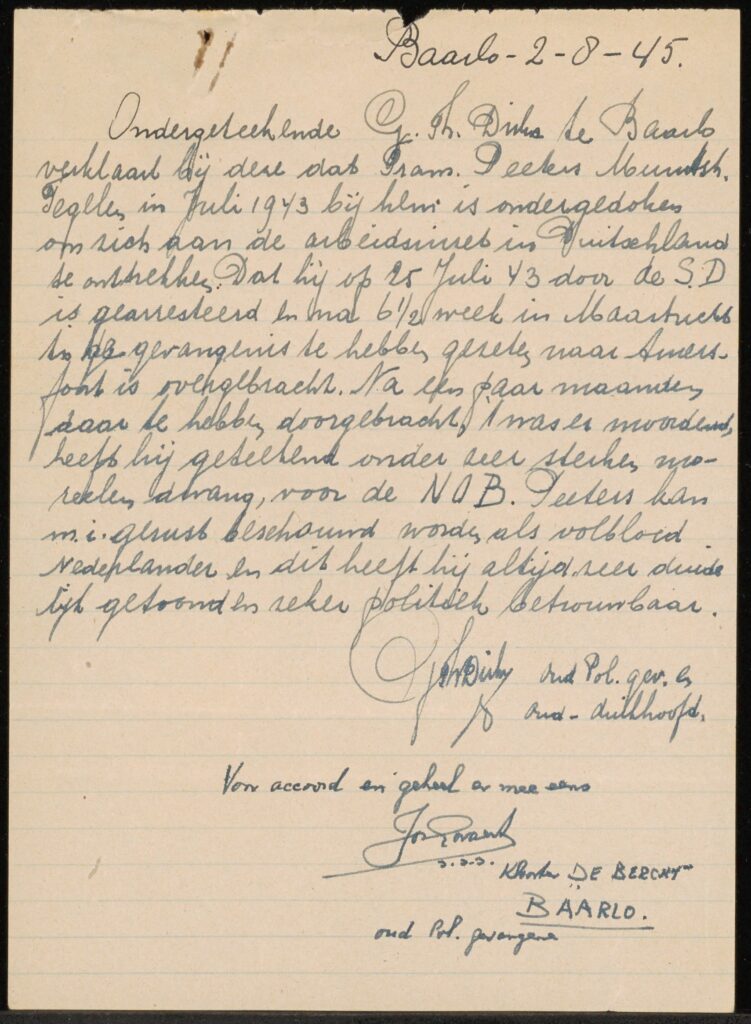 Baarlo - 2 - 8 - 45.
Ondergeteekende G. Th. Dirks te Baarlo
verklaart bij deze dat Frans. Peeters
Tegelen in Juli 1943 bij hem is ondergedoken
om zich aan de arbeidsinzet in Duitschland
te onttrekken. Dat hij op 25 Juli 43 door de S.D
is gearresteerd en na 6 1/2 week in Maastricht
in de gevangenis te hebben gezeten naar Amers-
foort is overgebracht. Na een paar maanden
daar te hebben doorgebracht, 't was er moordend,
heeft hij geteekend onder zeer sterken mo-
reelen dwang, voor de N A B. Peeters kan
m.i. gerust beschouwd worden als volbloed
Nederlander en dit heeft hij altijd zeer duide
lijk getoond en zeker politiek betrouwbaar.
G Th Dirks oud Pol. gev. en
oud - duikhoofd.
Voor accoord en geheel er mee eens
Jos Govaert
s.s.s. Klooster DE BERCHT
BAARLO.
oud Pol. gevangene